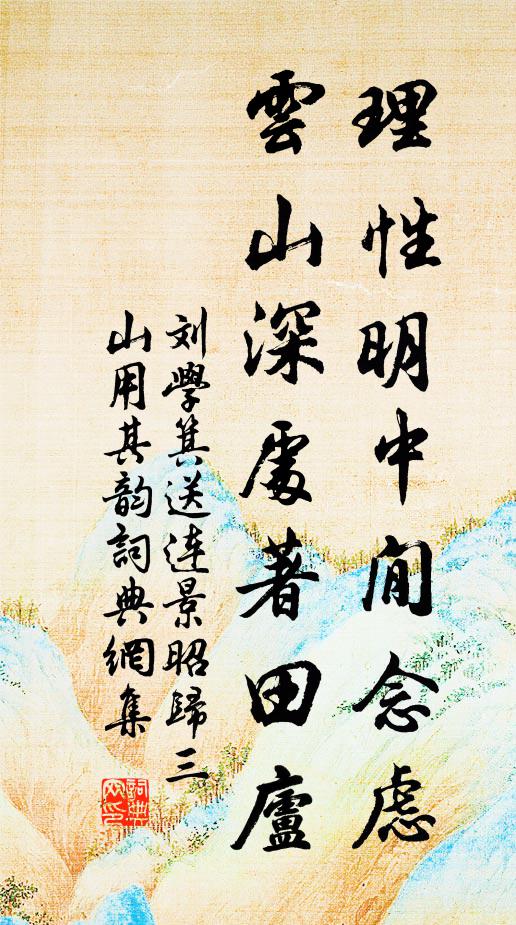 理性明中閒念慮
雲山深處著田廬
刘學箕送连景昭歸三
山用其韵詞典網集